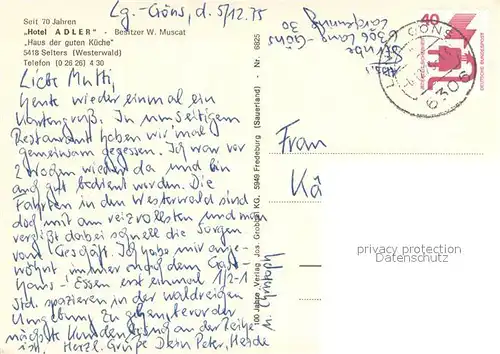 Lg.-Göns, d. 5/12.75
Seit 70 Jahren
„Hotel ADLER" - Besitzer W. Muscat
„Haus der guten Küche"
5418 Selters (Westerwald)
Telefon (0 26 26) 4 30
Liebe Mutti,
heute wieder einmal ein
Kartengruß. In umseitigem
Restaurant haben wir 'mal
gemeinsam gegessen. Ich war vor
2 Wochen wieder da und bin
auch gut bedient worden. Die
Fahrten in den Westerwald sind
doch mit am reizvollsten und man
vergißt dabei schnell die Sorgen
vom Geschäft. Ich habe mir ange-
wöhnt immer nach dem Gast-
haus-Essen erst einmal 1/2-1
Std. spazieren in der waldreichen
Umgebung zu gehen, bevor der
nächste Kundenbesuch an der Reihe
ist. Herzl. Grüße Dein Peter, Heide
u. Christoph
100 Jahre Verlag Jos. Grobbel KG, 5949 Fredeburg (Sauerland) - Nr. 6825
Abs.:
6306 Lang-Göns
30
40
DEUTSCHE BUNDESPOST
GÖNS
6306
Frau
Kä
privacy protection
Datenschutz